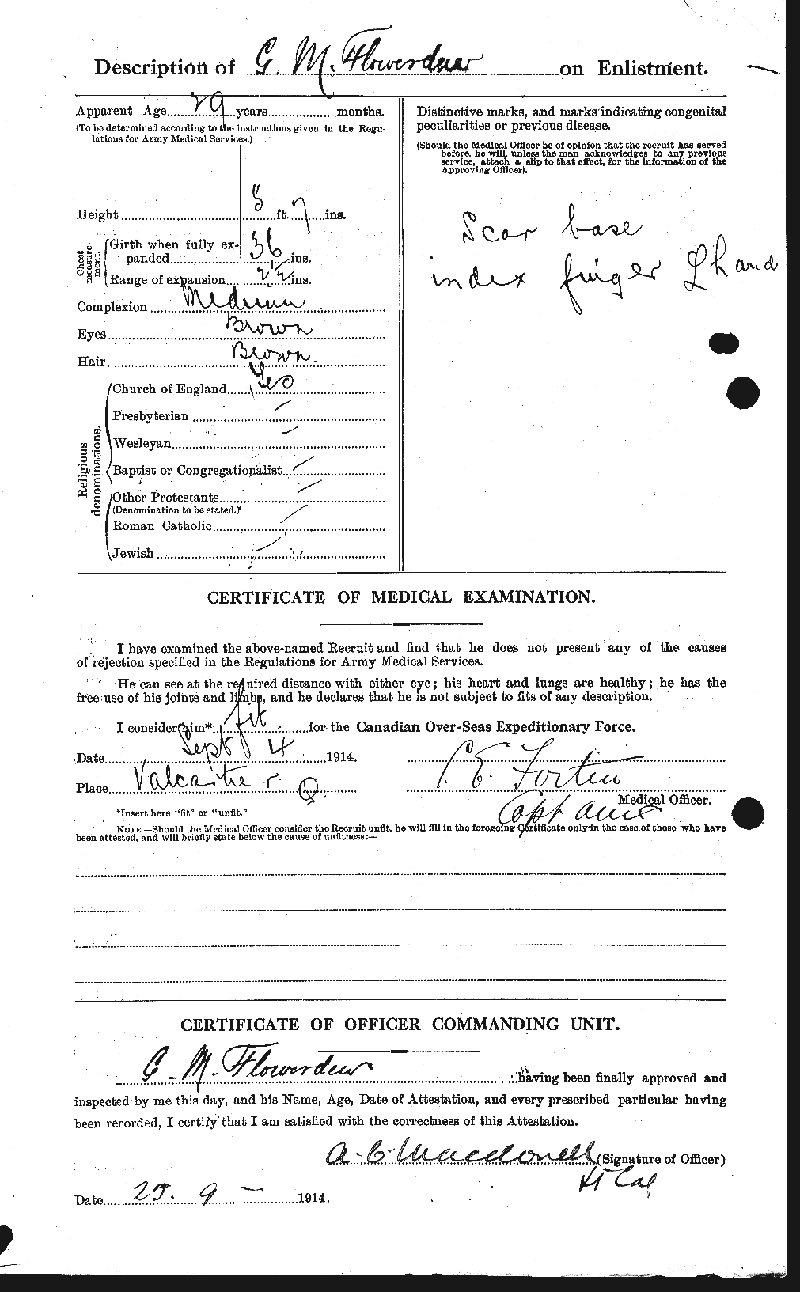 Description of G. M. Flowerdew on Enlistment.
Apparent Age 29 years months.
(To be determined according to the instructions given in the Regu-
lations for Army Medical Services.)
Height 5 ft. 7 ins.
Chest measure-ment.
Girth when fully ex-
panded 36 ins.
Range of expansion 2 1/2 ins.
Complexion Medium
Eyes Brown
Hair Brown
Religious denominations.
Church of England Yes
Presbyterian
Wesleyan
Baptist or Congregationalist
Other Protestants
(Denomination to be stated.)
Roman Catholic
Jewish
Distinctive marks, and marks indicating congenital
peculiarities or previous disease.
(Should the Medical Officer be of opinion that the recruit has served
before, he will, unless the man acknowledges to any previous
service, attach a slip to that effect, for the information of the
Approving Officer).
Scar base
index finger L hand
CERTIFICATE OF MEDICAL EXAMINATION.
I have examined the above-named Recruit and find that he does not present any of the causes
of rejection specified in the Regulations for Army Medical Services.
He can see at the required distance with either eye; his heart and lungs are healthy; he has the
free use of his joints and limbs, and he declares that he is not subject to fits of any description.
I consider him* fit for the Canadian Over-Seas Expeditionary Force.
Date Sept 4 1914.
Place Valcartier Q
C E Fortin
Medical Officer.
Capt
*Insert here "fit" or "unfit."
NOTE.—Should the Medical Officer consider the Recruit unfit, he will fill in the foregoing Certificate only in the case of those who have
been attested, and will briefly state below the cause of unfitness:—
CERTIFICATE OF OFFICER COMMANDING UNIT.
G. M. Flowerdew having been finally approved and
inspected by me this day, and his Name, Age, Date of Attestation, and every prescribed particular having
been recorded, I certify that I am satisfied with the correctness of this Attestation.
A. C. Macdonell (Signature of Officer)
Lt Col
Date 25. 9 - 1914.